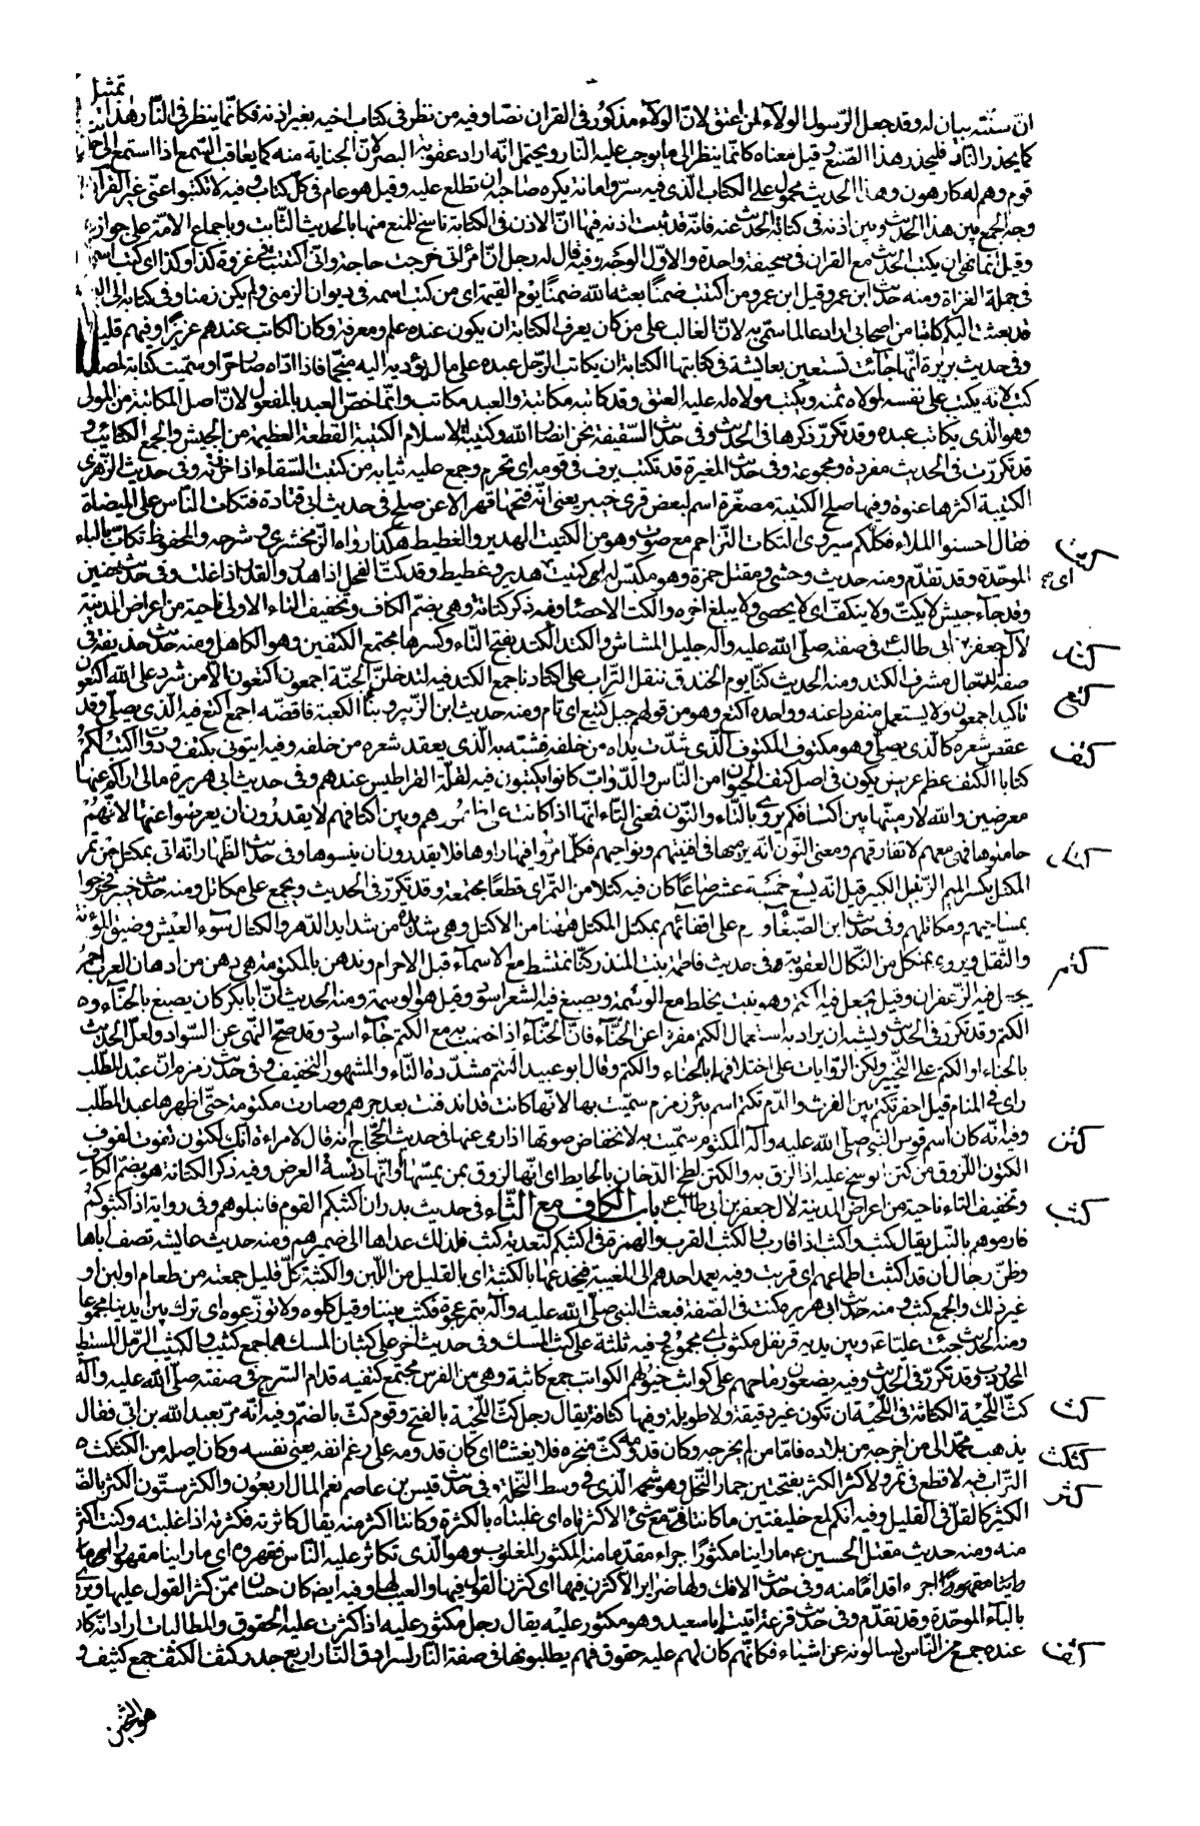 تمثيل
ان سنته بيان له وقد جعل الرسول الولاء لمن اعتق لان الولاء مذكور في القران نصا وفيه من نظر في كتاب اخيه بغير اذنه فكانما ينظر في النار هذا
كما يحذر النار فليحذر هذا الصنع وقيل معناه كانما ينظر الى ما يوجب عليه النار ويحتمل انه اراد عقوبة البصر لان الجناية منه كما يعاقب السمع اذا استمع الى
قوم وهم له كارهون وهذا الحديث محمول على الكتاب الذي فيه سر وامانة يكره صاحبه ان تطلع عليه وقيل هو عام في كل كتاب وفيه لا تكتبوا عني غير القران
وجه الجمع بين هذا الحديث وبين اذنه في كتابة الحديث عنه فانه قد ثبت اذنه فيها ان الاذن في الكتابة ناسخ للمنع منها بالحديث الثابت وباجماع الامة على جوازه
وقيل انما نهى ان يكتب الحديث مع القران في صحيفة واحدة والاول الوجه وفيه قال له رجل ان امراتي خرجت حاجة واني اكتتبت في غزوة كذا وكذا اي كتب اسمي
في جملة الغزاة ومنه حديث ابن عمر وقيل ابن عمرو من اكتتب ضمنا بعثه الله ضمنا يوم القيمة اي من كتب اسمه في ديوان الزمنى ولم يكن زمنا وفي كتابه الى
قد بعثت اليكم كاتبا من اصحابي اراد عالما سمي به لان الغالب على من كان يعرف الكتابة ان يكون عنده علم ومعرفة وكان الكاتب عندهم عزيزا وفيهم قليلا
وفي حديث بريرة انها جائت تستعين بعائشة في كتابتها الكتابة ان يكاتب الرجل عبده على مال يؤديه اليه منجما فاذا اداه صار حرا وسميت كتابة لمصدر
كتب لانه يكتب على نفسه لمولاه ثمنه ويكتب مولاه له عليه العتق وقد كاتبه مكاتبة والعبد مكاتب وانما خص العبد بالمفعول لان اصل المكاتبة من المولى
وهو الذي يكاتب عبده وقد تكرر ذكرها في الحديث وفي حديث السقيفة نحن انصار الله وكتيبة الاسلام الكتيبة القطعة العظيمة من الجيش والجمع الكتائب و
قد تكررت في الحديث مفردة ومجموعة وفي حديث المغيرة قد تكتب يزف في قومه اي تحزم وجمع عليه ثيابه من كتبت السقاء اذا خرزته وفي حديث الزهري
الكتيبة اكثرها عنوة وفيها صلح الكتيبة مصغرة اسم لبعض قرى خيبر يعني انه فتحها قهرا لا عن صلح في حديث ابي قتادة فتكات الناس على الميضاة
فقال احسنوا الملاء فكلكم سيروى التكات التزاحم مع صوت وهو من الكتيت الهدير والغطيط هكذا رواه الزمخشري وشرحه والمحفوظ تكاب بالباء
كتت
اي الموحدة وقد تقدم ومنه حديث وحشي ومقتل حمزة وهو مكبس له كتيت هدير وغطيط وقد كت الفحل اذا هدر والقدر اذا غلت وفي حديث حنين
وقد جاء جيش لا يكت ولا ينكف اي لا يحصى ولا يبلغ اخره والكت الاحصاء وفيه ذكر كتانة وهي بضم الكاف وتخفيف التاء الاولى ناحية من اعراض المدينة
كتد
لآل جعفر بن ابي طالب في صفته صلى الله عليه وآله جليل المشاش والكتد الكتد بفتح التاء وكسرها مجتمع الكتفين وهو الكاهل ومنه حديث حذيفة في
صفة الدجال مشرف الكتد ومنه الحديث كنا يوم الخندق ننقل التراب على اكتادنا جمع الكتد فيه لتدخلن الجنة اجمعون اكتعون الا من شرد على الله اكتعون
كتع
تاكيد اجمعون ولا يستعمل منفردا عنه وواحده اكتع وهو من قولهم جبل كتيع اي تام ومنه حديث ابن الزبير وبناء الكعبة فاقضه اجمع اكتع فيه الذي يصلي وقد
كتف
عقص شعره كالذي يصلي وهو مكتوف المكتوف الذي شدت يداه من خلفه فشبه به الذي يعقد شعره من خلفه وفيه ايتوني بكتف ودواة اكتب لكم
كتابا الكتف عظم عريض يكون في اصل كتف الحيوان من الناس والدواب كانوا يكتبون فيه لقلة القراطيس عندهم وفي حديث ابي هريرة مالي اراكم عنها
معرضين والله لارمينها بين اكتافكم يروى بالتاء والنون فمعنى التاء انها اذا كانت على ظهورهم وبين اكتافهم لا يقدرون ان يعرضوا عنها لانهم
كتل
حاملوها فهي معهم لا تفارقهم ومعنى النون انه يرميها في افنيتهم ونواحيهم فكلما مروا فيها راوها فلا يقدرون ان ينسوها وفي حديث الظهار انه اتى بمكتل من تمر
المكتل بكسر الميم الزنبيل الكبير قيل انه يسع خمسة عشر صاعا كان فيه كتلا من التمر اي قطعا مجتمعة وقد تكرر في الحديث ويجمع على مكاتل ومنه حديث خيبر فخرجوا
بمساحيهم ومكاتلهم وفي حديث ابن الصبغاء وارم على اقفائهم بمكتل المكتل ههنا من الاكتل وهي شديدة من شدايد الدهر والكتال سوء العيش وضيق المؤنة
كتم
والثقل ويروى بمنكل من النكال العقوبة في حديث فاطمة بنت المنذر كنا نمتشط مع اسماء قبل الاحرام وندهن بالمكتومة هي دهن من ادهان العرب احمر
يجعل فيه الزعفران وقيل يجعل فيه الكتم وهو نبت يخلط مع الوسمة ويصبغ فيه الشعر اسود وقيل هو الوسمة ومنه الحديث ان ابا بكر كان يصبغ بالحناء و
الكتم وقد تكرر في الحديث ويشبه ان يراد به استعمال الكتم مفردا عن الحناء فان الحناء اذا خضب به مع الكتم جاء اسود وقد صح النهي عن السواد ولعل الحديث
بالحناء او الكتم على التخيير ولكن الروايات على اختلافها بالحناء والكتم وقال ابو عبيد الكتم مشددة التاء والمشهور التخفيف وفي حديث زمزم ان عبد المطلب
راى في المنام قيل احفر تكتم بين الفرث والدم تكتم اسم بئر زمزم سميت بها لانها كانت قد اندفنت بعد جرهم وصارت مكتومة حتى اظهرها عبد المطلب
كتن
وفيه انه كان اسم قوس النبي صلى الله عليه وآله المكتوم سميت به لانخفاض صوتها اذا رمي عنها في حديث الحجاج انه قال لامراة انك لكتون لفوت لقوف
الكتون اللزوق من كتن الوسخ عليه اذا لزق به والكتن لطخ الدخان بالحايط اي انها لزوق بمن يمسها او انها دنسة العرض وفيه ذكر الكتانة هو بضم الكاف
كثب
وتخفيف التاء ناحية من اعراض المدينة لآل جعفر بن ابي طالب باب الكاف مع الثاء في حديث بدر ان اكثبكم القوم فانبلوهم وفي رواية اذا كثبوكم
فارموهم بالنبل يقال كثب واكثب اذا قارب والكثب القرب والهمزة في اكثبكم لتعدية كثب فلذلك عداها الى ضميرهم ومنه حديث عايشة تصف اباها
وظن رجال ان قد اكثبت اطماعهم اي قربت وفيه يعمد احدهم الى المغيبة فيخدعها بالكثبة اي بالقليل من اللبن والكثبة كل قليل جمعته من طعام او لبن او
غير ذلك والجمع كثب ومنه حديث ابي هريرة كنت في الصفة فبعث النبي صلى الله عليه وآله بتمر عجوة فكثب بيننا وقيل كلوه ولا توزعوه اي ترك بين ايدينا مجموعا
ومنه الحديث جئت عليا ع وبين يديه قرنفل مكثوب اي مجموع وفيه ثلثة على كثب المسك وفي حديث آخر على كثبان المسك هما جمع كثيب والكثيب الرمل المستطيل
المحدودب وقد تكرر في الحديث وفيه يضعون رماحهم على كواثب خيولهم الكواثب جمع كاثبة وهي من الفرس مجتمع كتفيه قدام السرج في صفته صلى الله عليه وآله
كثث
كث اللحية الكثاثة في اللحية ان تكون غير دقيقة ولا طويلة وفيها كثافة يقال رجل كث اللحية بالفتح وقوم كث بالضم وفيه انه مر بعبد الله بن ابي فقال
كثكث
يذهب محمد الى من اخرجه من بلاده فاما من لم يخرجه وكان قدومه كث منخره فلا يغشه اي كان قدومه على رغم انفه يعني نفسه وكان اصله من الكثكث
كثر
التراب فيه لا قطع في ثمر ولا كثر الكثر بفتحتين جمار النخل وهو شحمه الذي في وسط النخلة في حديث قيس بن عاصم نعم المال اربعون والكثر ستون الكثر بالضم
الكثير كالقل في القليل وفيه انكم لمع خليفتين ما كانتا مع شيء الا كثرتاه اي غلبتاه بالكثرة وكانتا اكثر منه يقال كاثرته فكثرته اذا غلبته وكنت اكثر
منه ومنه حديث مقتل الحسين ع ما راينا مكثورا اجراء مقدما منه المكثور المغلوب وهو الذي تكاثر عليه الناس فقهروه اي ما راينا مقهورا
اجرء اقداما منه وفي حديث الافك ولها ضراير الا كثرن فيها اي كثرن القول فيها والعيب لها وفيه ايضا كان حسان ممن كثر القول عليها ويروى
بالباء الموحدة وقد تقدم وفي حديث قزعة اتيت ابا سعيد وهو مكثور عليه يقال رجل مكثور عليه اذا كثرت عليه الحقوق والمطالبات اراد انه كان
كثف
عنده جمع من الناس يسالونه عن اشياء فكانهم كان لهم عليه حقوق فهم يطلبونها في صفة النار لسرادق النار اربع جدر كثف الكثف جمع كثيف و
هو الثخين